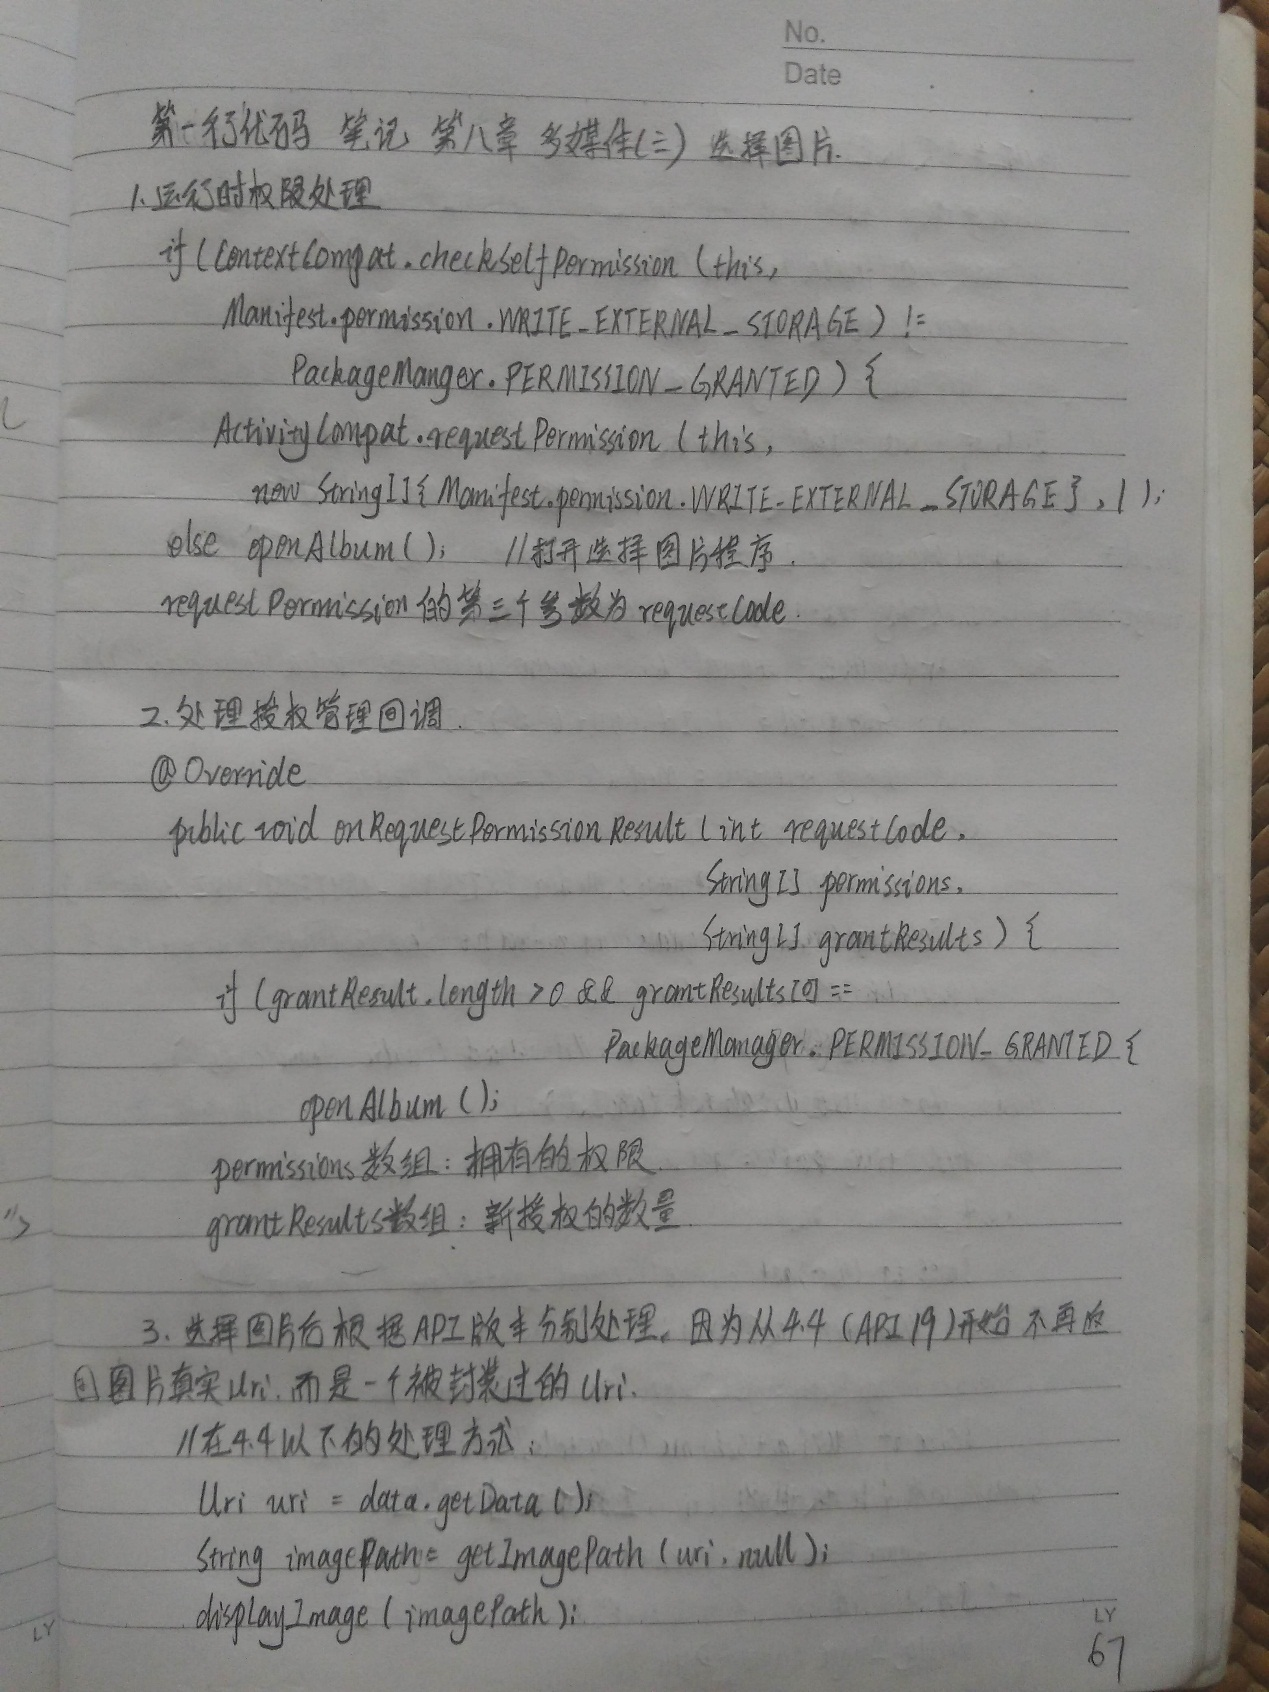 No.
Date
第一行代码 笔记 第八章 多媒体(三) 选择图片.
1.运行时权限处理
if (ContextCompat.checkSelfPermission (this,
Manifest.permission.WRITE_EXTERNAL_STORAGE) !=
PackageManger.PERMISSION_GRANTED) {
ActivityCompat.requestPermission (this,
new String[]{Manifest.permission.WRITE_EXTERNAL_STORAGE}, 1);
else openAlbum(); //打开选择图片程序.
requestPermission的第三个参数为requestCode.
2.处理授权管理回调.
@Override
public void onRequestPermissionResult (int requestCode,
String[] permissions,
String[] grantResults) {
if (grantResult.length > 0 && grantResults[0] ==
PackageManager.PERMISSION_GRANTED {
openAlbum ();
permissions数组：拥有的权限
grantResults数组：新授权的数量
3.选择图片后根据API版本分别处理,因为从4.4 (API 19)开始不再返
回图片真实Uri,而是一个被封装过的Uri.
//在4.4以下的处理方式:
Uri uri = data.getData();
String imagePath = getImagePath (uri, null);
displayImage (imagePath);
LY
67
LY